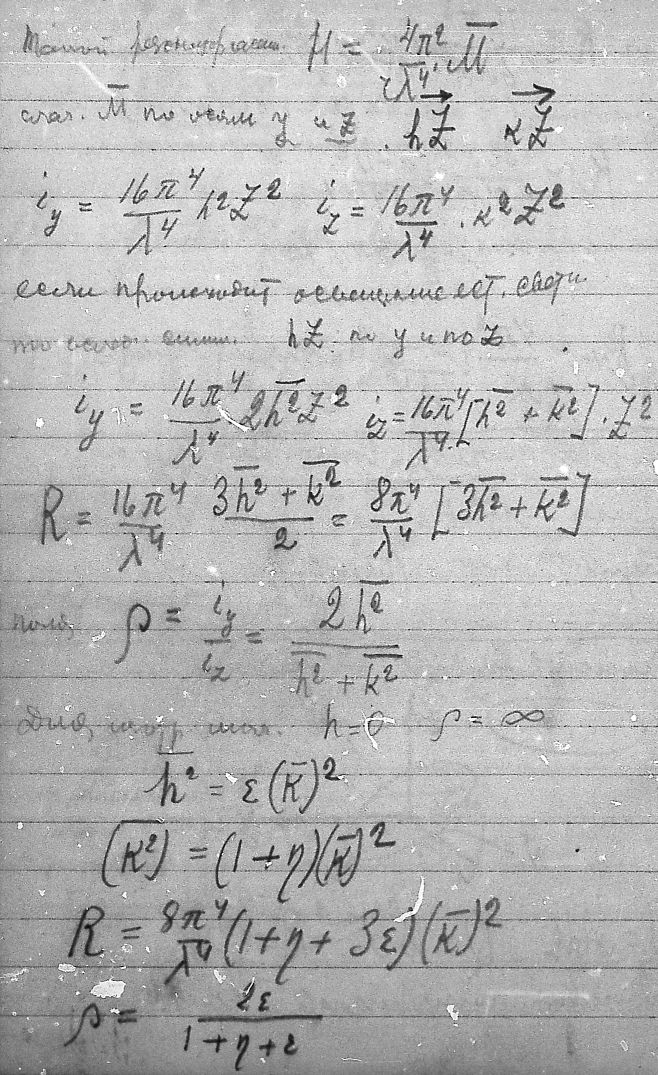 H = 4π²/rλ⁴ · M̅
M̅ по осям y и z. hZ⃗ кZ⃗
i_y = 16π⁴/λ⁴ h²Z² i_z = 16π⁴/λ⁴ · к²Z²
если происходит освещение ест. свет
hZ по y и по z
i_y = 16π⁴/λ⁴ 2h̅²Z² i_z = 16π⁴/λ⁴ · [h̅² + k̅²] · Z²
R = 16π⁴/λ⁴ (3h̅² + k̅²)/2 = 8π⁴/λ⁴ [3h̅² + k̅²]
ρ = i_y/i_z = 2h̅²/(h̅² + k̅²)
Для h = 0 ρ = ∞
h̅² = ε(k̅)²
(к̅²) = (1 + η)(к̅)²
R = 8π⁴/λ⁴ (1 + η + 3ε)(к̅)²
ρ = 2ε/(1 + η + ε)